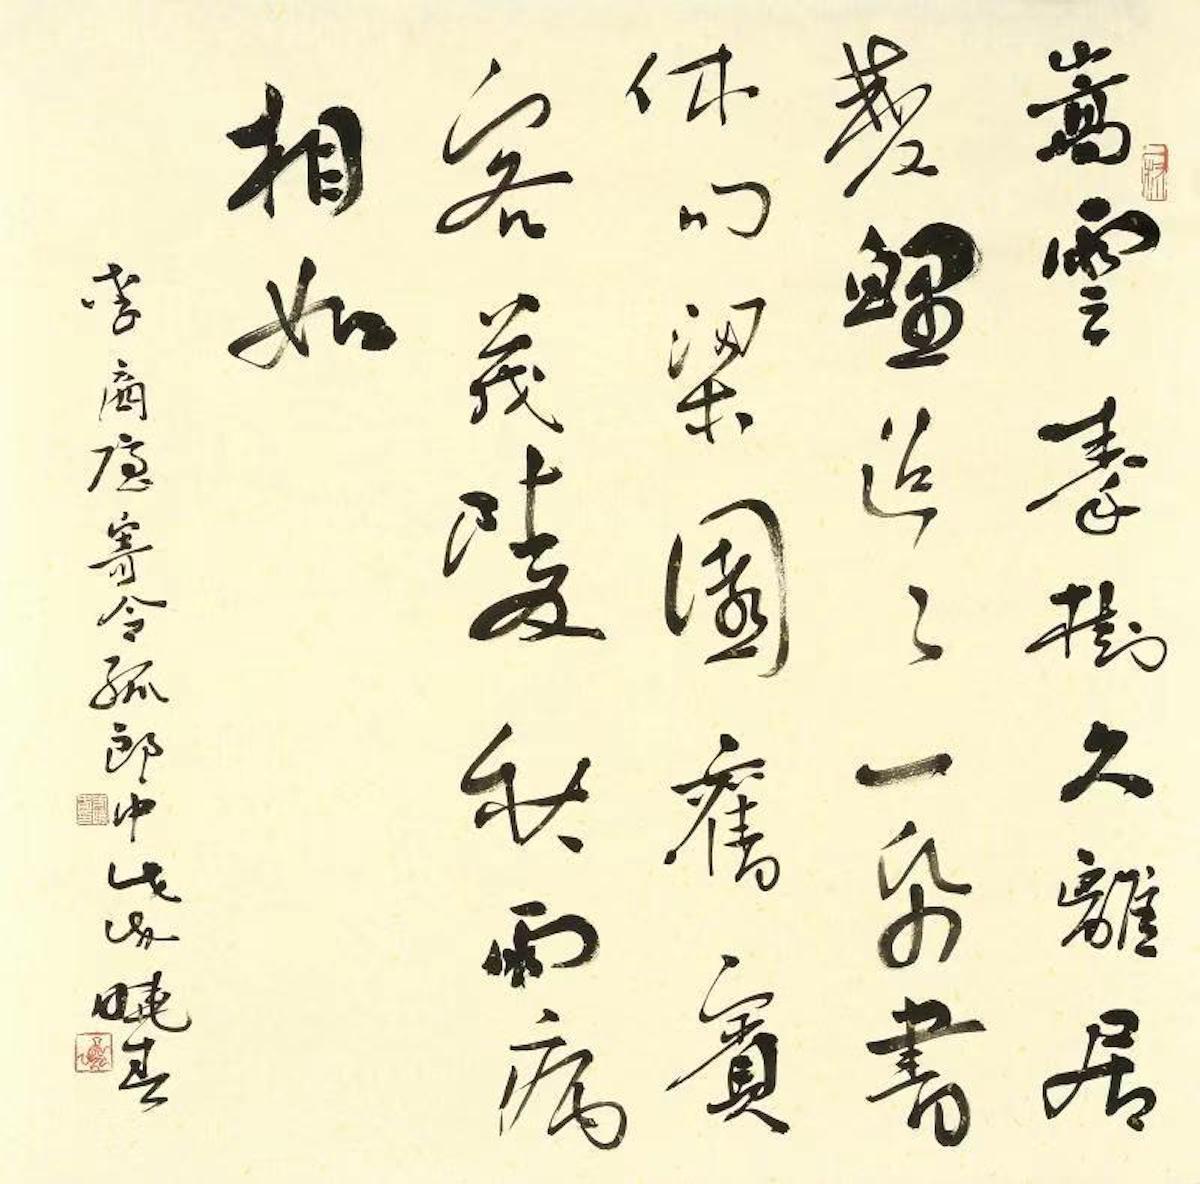 嵩雲秦樹久離居
雙鯉迢々一紙書
休问梁園舊賓
客茂陵秋雨病
相如
李商隱寄令狐郎中